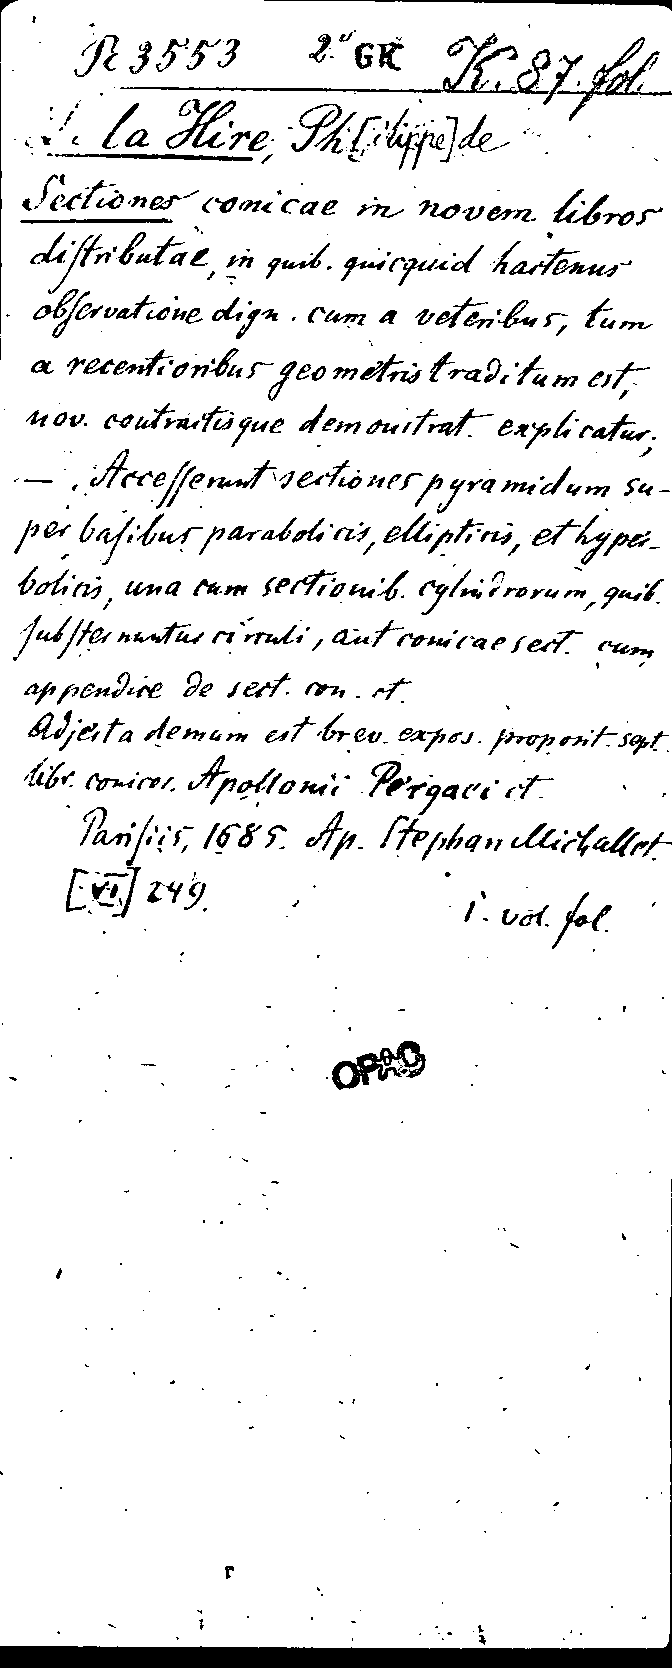 R 3553 2° GK K. 87. fol.
la Hire, Ph[ilippe] de
Sectiones conicae in novem libros
diſtributae, in quib. quicquid hactenus
obſervatione dign. cum a veteribus, tum
a recentioribus geometris traditum est,
nov. contractisque demonstrat. explicatur;
— . Acceſſerunt sectiones pyramidum su-
per baſibus parabolicis, ellipticis, et hyper-
bolicis, una cum sectionib. cylindrorum, quib.
ſubſternuntur circuli, aut conicae sect. cum
appendice de sect. con. et.
Adjecta demum est brev. expos. proposit. sept.
libr. conicor. Apollonii Pergaei et.
Pariſiis, 1685. Ap. Stephan Michallet.
[VI] 249.
1. vol. fol.
OPAC